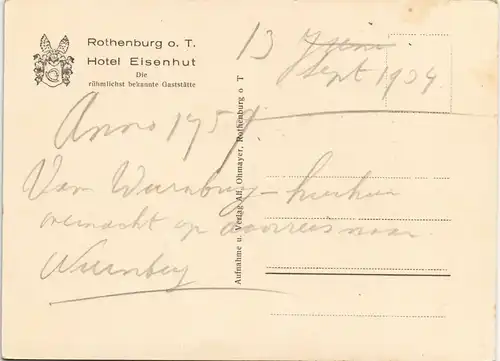 Rothenburg o. T.
Hotel Eisenhut
Die
rühmlichst bekannte Gaststätte
13 Juni
Sept 1934
Anno 1954
Van Wurnburg - hierheen
overnacht op doorreis naar
Nurnberg
Aufnahme u. Verlag Alf. Ohmayer, Rothenburg o T